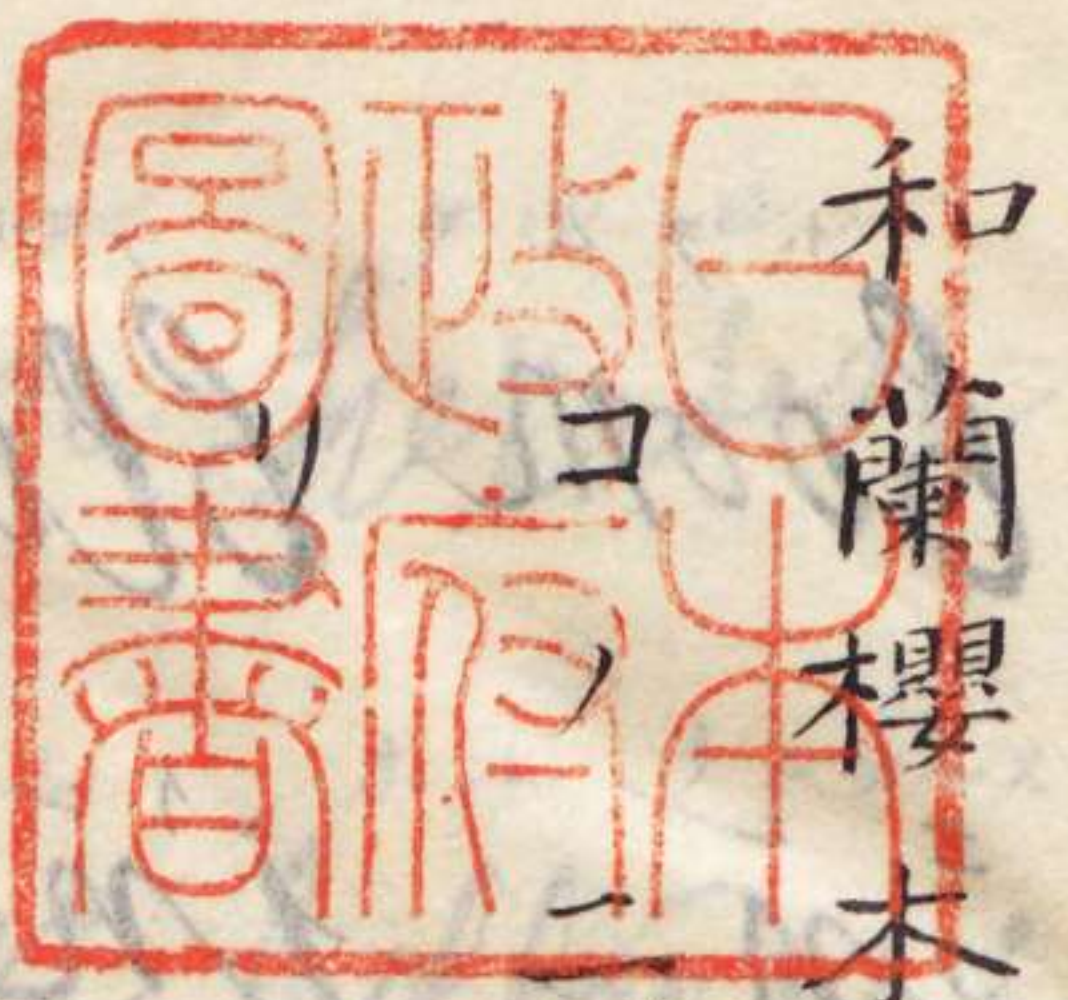 和蘭櫻木
コノ二
リ
日本
政府
圖書